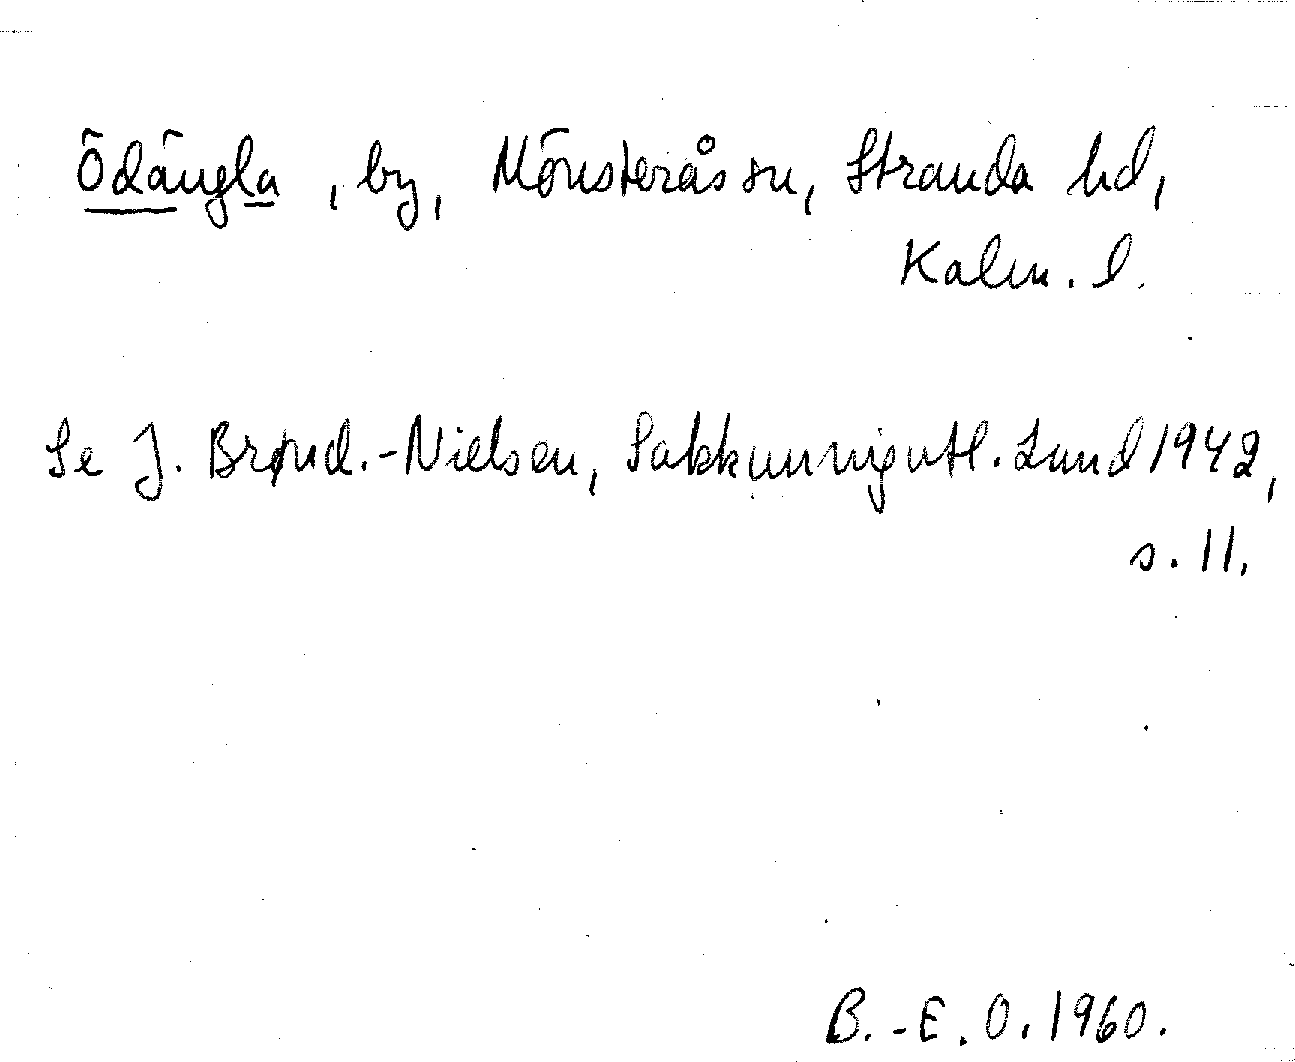 Ödängla, by, Mönsterås sn, Stranda hd,
Kalm. l.
Se J. Brønd.-Nielsen, Sakkunnigutl. Lund 1942,
s. 11.
B.-E. O. 1960.